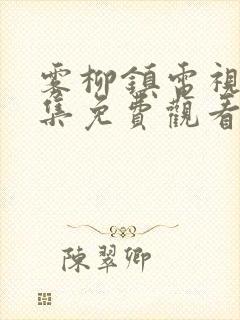 雾柳鎮电視
集免費觀看
陳翠卿